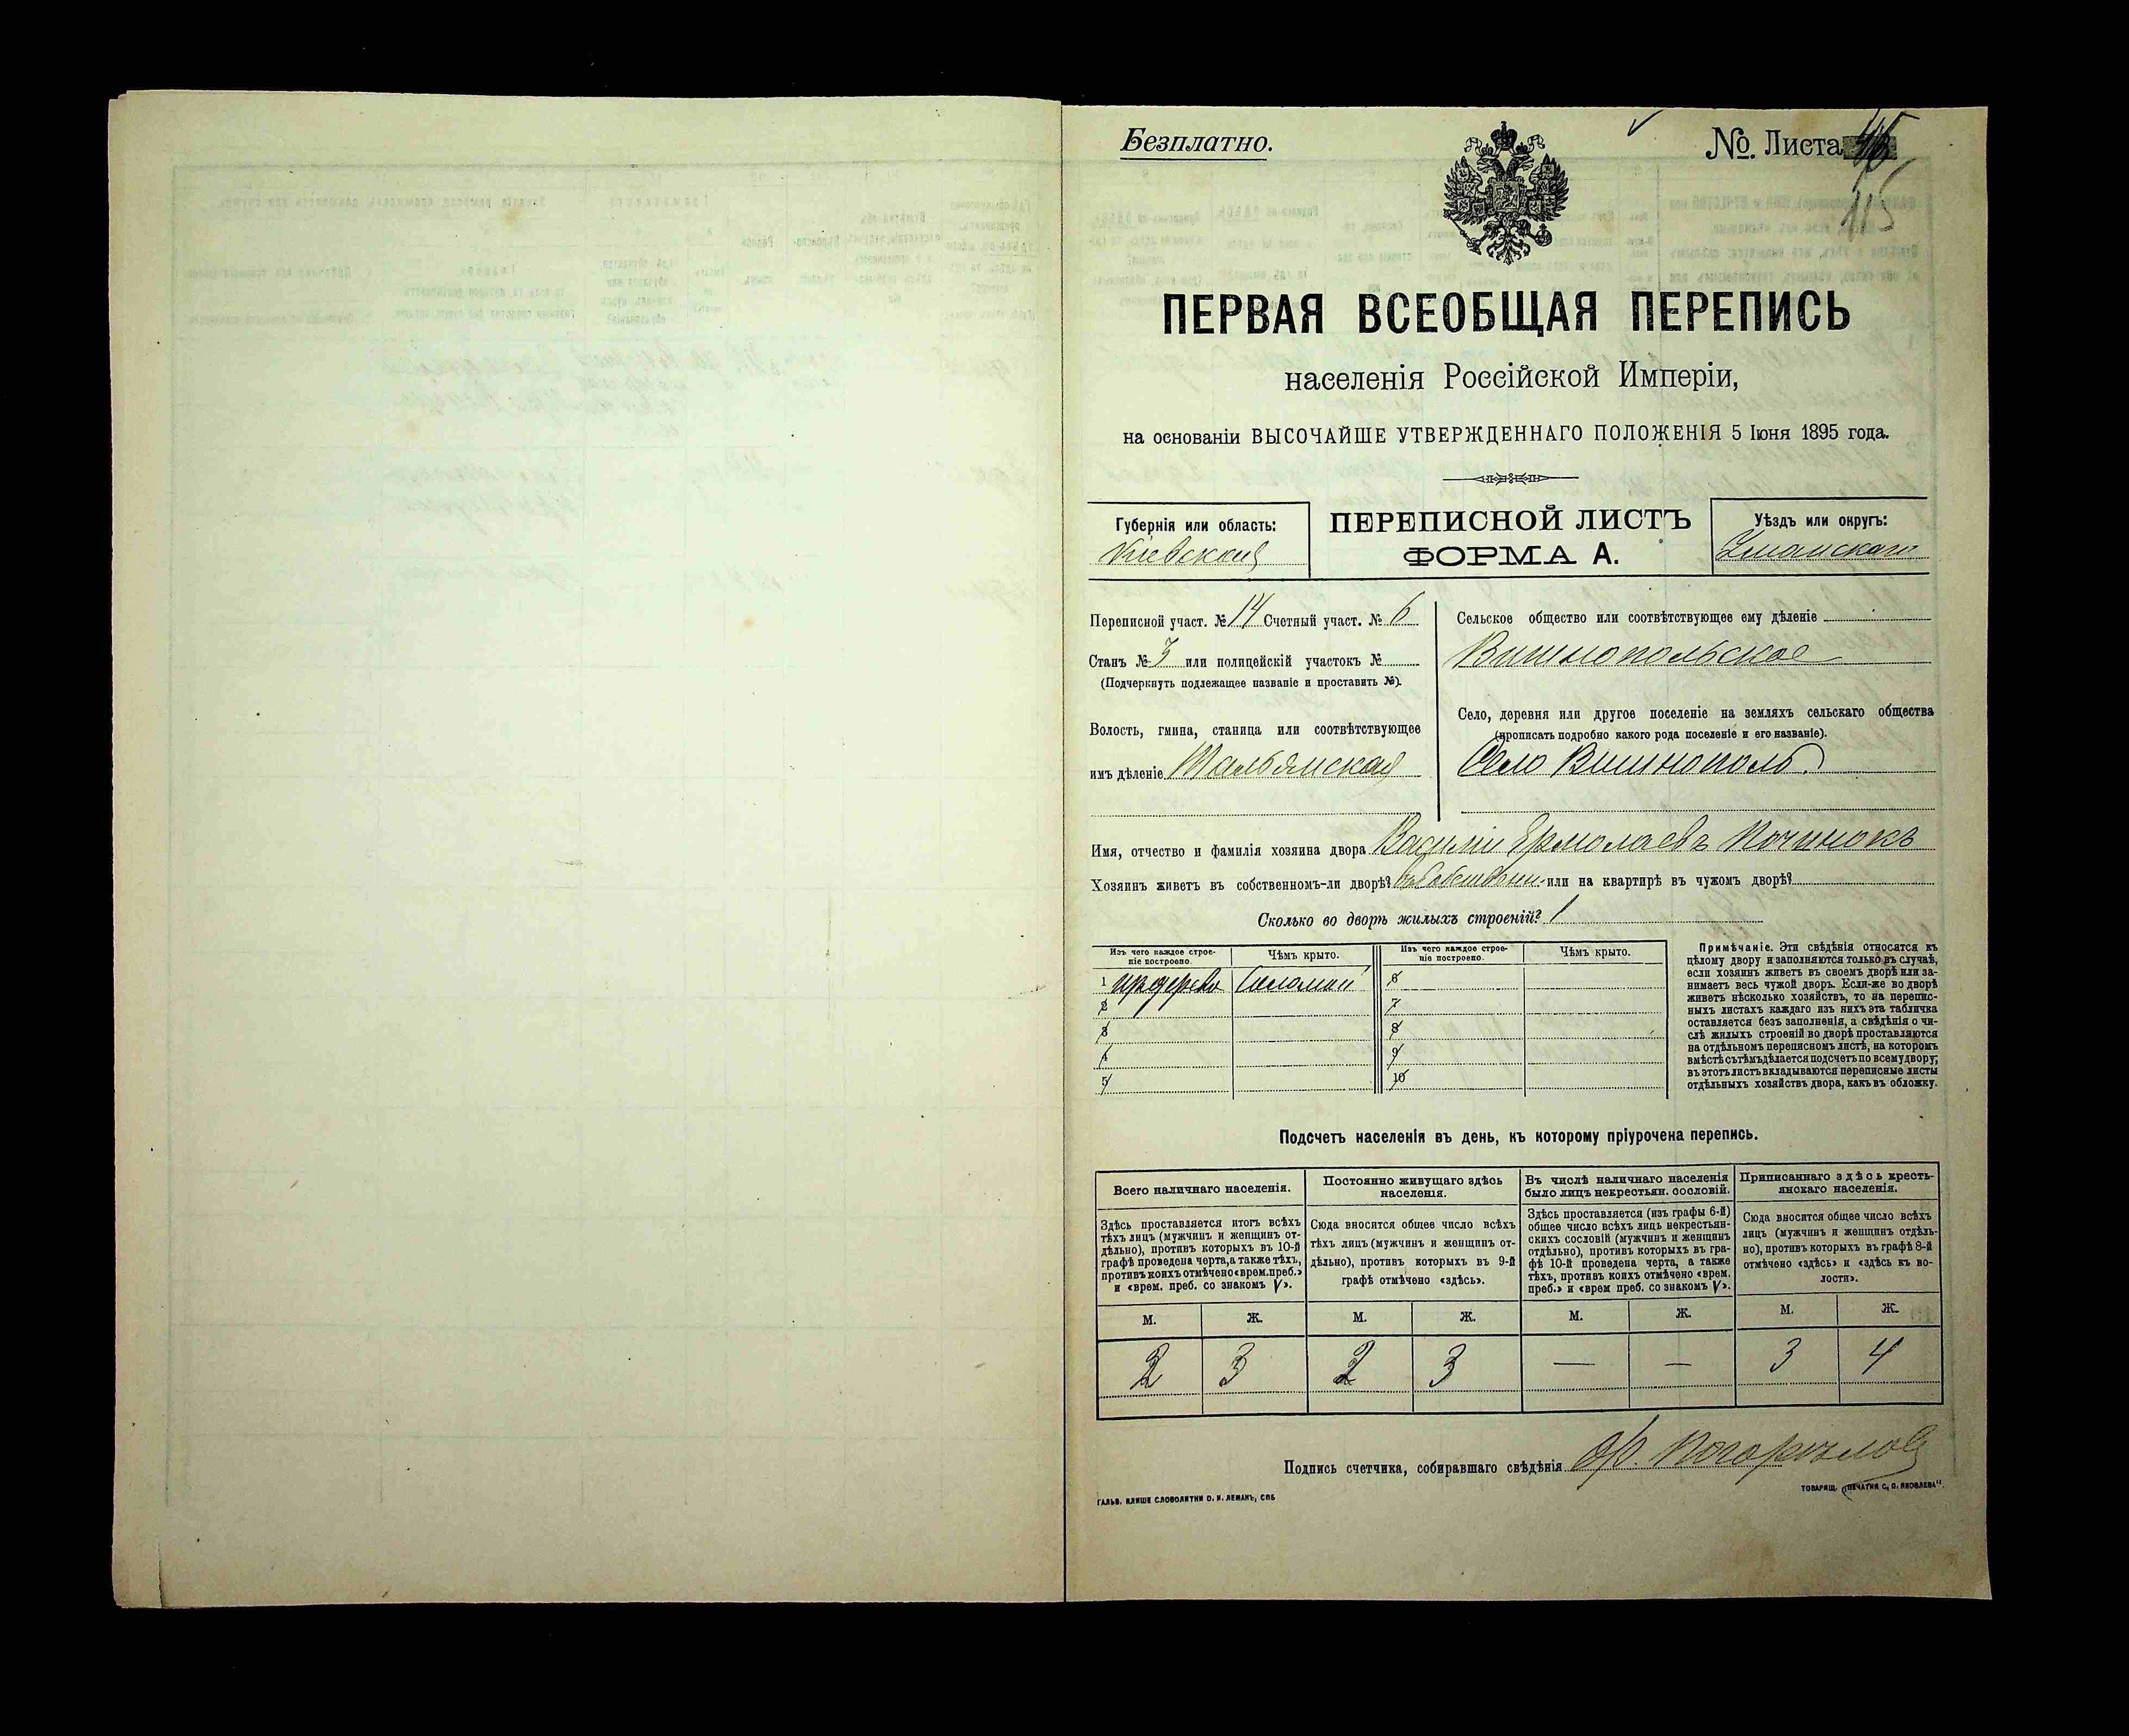 Безплатно.
№. Листа
115
ПЕРВАЯ ВСЕОБЩАЯ ПЕРЕПИСЬ
населенія Россійской Имперіи,
на основаніи ВЫСОЧАЙШЕ УТВЕРЖДЕННАГО ПОЛОЖЕНІЯ 5 Іюня 1895 года.
Губернія или область:
Кіевская
ПЕРЕПИСНОЙ ЛИСТЪ
ФОРМА А.
Уѣздъ или округъ:
Уманскаго
Переписной участ. № 14 Счетный участ. № 6
Станъ № 3 или полицейскій участокъ №
(Подчеркнуть подлежащее названіе и проставить №).
Волость, гмина, станица или соотвѣтствующее
имъ дѣленіе Тальянская
Сельское общество или соотвѣтствующее ему дѣленіе
Вишнопольское
Село, деревня или другое поселеніе на земляхъ сельскаго общества
(прописать подробно какого рода поселеніе и его названіе).
Село Вишнополь.
Имя, отчество и фамилія хозяина двора Василій Ермолаевъ Починокъ
Хозяинъ живетъ въ собственномъ-ли дворѣ? или на квартирѣ въ чужомъ дворѣ?
Сколько во дворѣ жилыхъ строеній? 1
Изъ чего каждое строе-
ніе построено.
Чѣмъ крыто.
Изъ чего каждое строе-
ніе построено.
Чѣмъ крыто.
1 Соломой
2
3
4
5
6
7
8
9
10
Примѣчаніе. Эти свѣдѣнія относятся къ
цѣлому двору и заполняются только въ случаѣ,
если хозяинъ живетъ въ своемъ дворѣ или за-
нимаетъ весь чужой дворъ. Если-же во дворѣ
живетъ нѣсколько хозяйствъ, то на перепис-
ныхъ листахъ каждаго изъ нихъ эта табличка
оставляется безъ заполненія, а свѣдѣнія о чи-
слѣ жилыхъ строеній во дворѣ проставляются
на отдѣльномъ переписномъ листѣ, на которомъ
вмѣстѣ съ тѣмъ дѣлается подсчетъ по всему двору;
въ этотъ листъ вкладываются переписные листы
отдѣльныхъ хозяйствъ двора, какъ въ обложку.
Подсчетъ населенія въ день, къ которому пріурочена перепись.
Всего наличнаго населенія.
Здѣсь проставляется итогъ всѣхъ
тѣхъ лицъ (мужчинъ и женщинъ от-
дѣльно), противъ которыхъ въ 10-й
графѣ проведена черта, а также тѣхъ,
противъ коихъ отмѣчено «врем. преб.»
и «врем. преб. со знакомъ V».
Постоянно живущаго здѣсь
населенія.
Сюда вносится общее число всѣхъ
тѣхъ лицъ (мужчинъ и женщинъ от-
дѣльно), противъ которыхъ въ 9-й
графѣ отмѣчено «здѣсь».
Въ числѣ наличнаго населенія
было лицъ некрестьян. сословій.
Здѣсь проставляется (изъ графы 6-й)
общее число всѣхъ лицъ некрестьян-
скихъ сословій (мужчинъ и женщинъ
отдѣльно), противъ которыхъ въ гра-
фѣ 10-й проведена черта, а также
тѣхъ, противъ коихъ отмѣчено «врем.
преб.» и «врем преб. со знакомъ V».
Приписаннаго здѣсь кресть-
янскаго населенія.
Сюда вносится общее число всѣхъ
лицъ (мужчинъ и женщинъ отдѣль-
но), противъ которыхъ въ графѣ 8-й
отмѣчено «здѣсь» и «здѣсь въ во-
лости».
М. Ж. М. Ж. М. Ж. М. Ж.
2 3 2 3 — — 3 4
Подпись счетчика, собиравшаго свѣдѣнія
ГАЛЬВ. КЛИШЕ СЛОВОЛИТНИ О. И. ЛЕМАНЪ, СПБ
ТОВАРИЩ. „ПЕЧАТНЯ С. П. ЯКОВЛЕВА“.